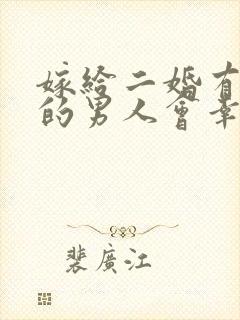 嫁給二婚有
的男人會幸
裴廣江